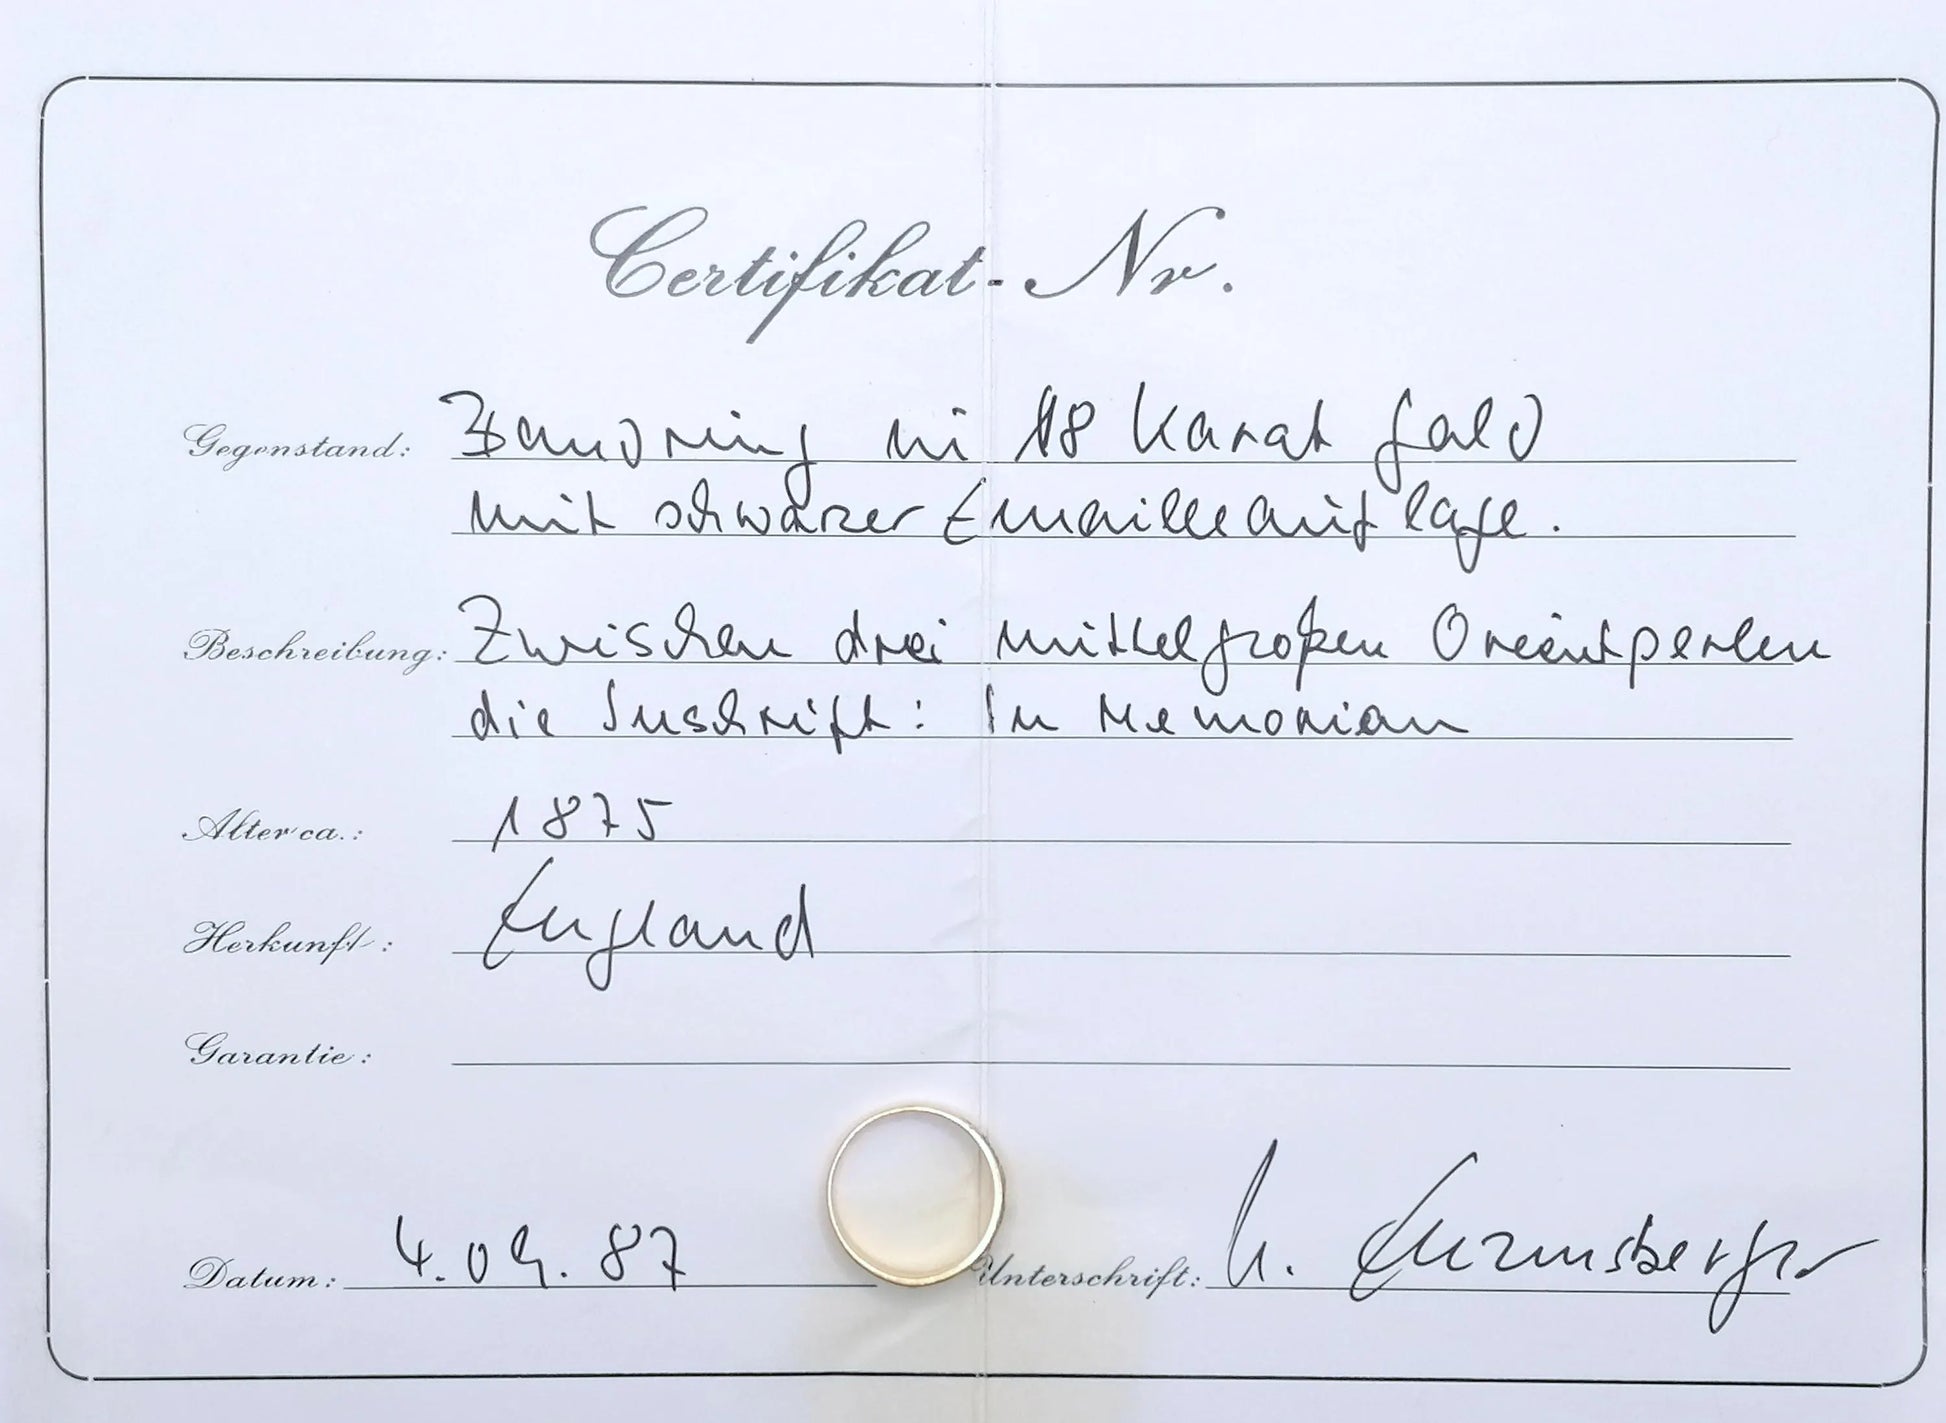 Certifikat-Nr.
Gegenstand: Bandring in 18 Karat Gold
mit schwarzer Emailleauflage.
Beschreibung: Zwischen drei mittelgroßen Orientperlen
die Inschrift: In Memoriam
Alter ca.: 1875
Herkunft: England
Garantie:
Datum: 4.09.87 Unterschrift: